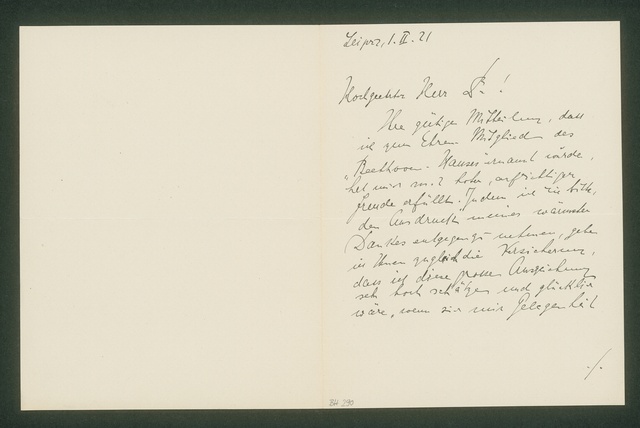 Leipz, 1. II. 21
Hochgeehrter Herr Dr. !
Ihre gütige Mitteilung, dass
ich zum Ehren Mitglied des
„Beethoven-Hauses" ernannt würde,
hat mich mit hoher, aufrichtiger
Freude erfüllt. Indem ich Sie bitte,
den Ausdruck meines wärmsten
Dankes entgegenzunehmen, gebe
ich Ihnen zugleich die Versicherung,
dass ich diese grosse Auszeichnung
sehr hoch schätze und glücklich
wäre, wenn sich mir Gelegenheit
./.
BH 290